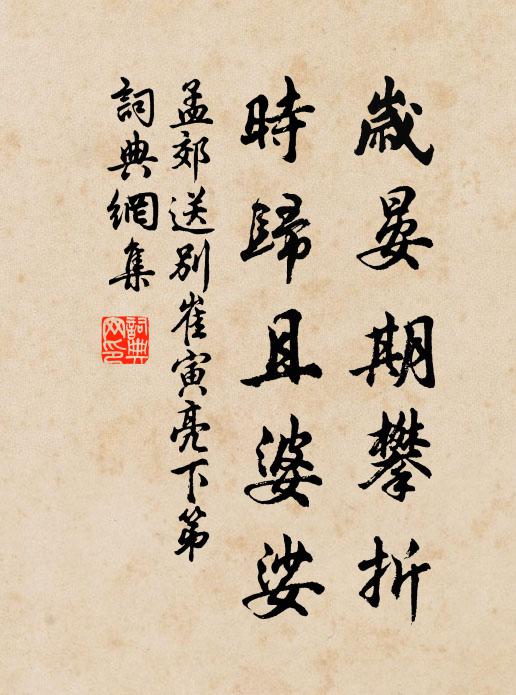 歲晏期攀折
時歸且婆娑
孟郊送別崔寅亮下第
詞典網集
詞典網印